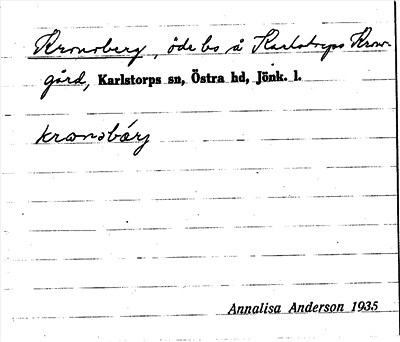 Kronoberg, öde bs å Karlstorps Krono-
gård, Karlstorps sn, Östra hd, Jönk. l.
Annalisa Anderson 1935